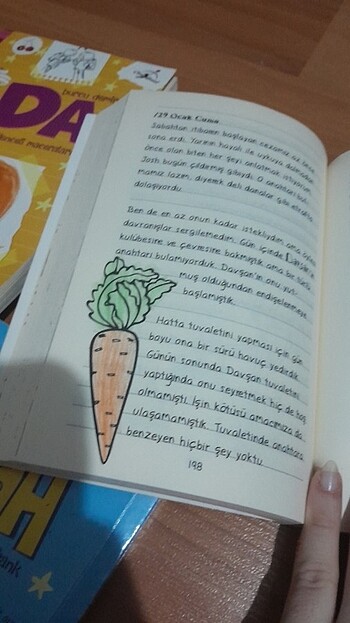 burcu
DA
maceraları
/29 Ocak Cuma
Sabahtan itibaren başlayan
sona erdi. Yarının hayali ile uykuya dalmadan
önce olan biten her şeyi anlatmak istiyorum
Josh bugün çıldırmış gibiydi. O anahtarı bul-
mamız lazım, diyerek deli danalar gibi etrafta
dolaşıyordu.
Ben de en az onun kadar istekliydim ama öyle
davranışlar sergilemedim. Gün içinde
kulübesine ve çevresine bakmıştık ama bir türlü
anahtarı bulamıyorduk. Davşan'ın onu yut-
muş olduğundan endişelenmeye
başlamıştık.
Hatta tuvaletini yapması için gün
boyu ona bir sürü havuç yedirdik.
Günün sonunda Davşan tuvaletini
yaptığında onu seyretmek hiç de hoş
olmamıştı. İşin kötüsü amacımıza da
ulaşamamıştık. Tuvaletinde anahtara
benzeyen hiçbir şey yoktu.
198
H